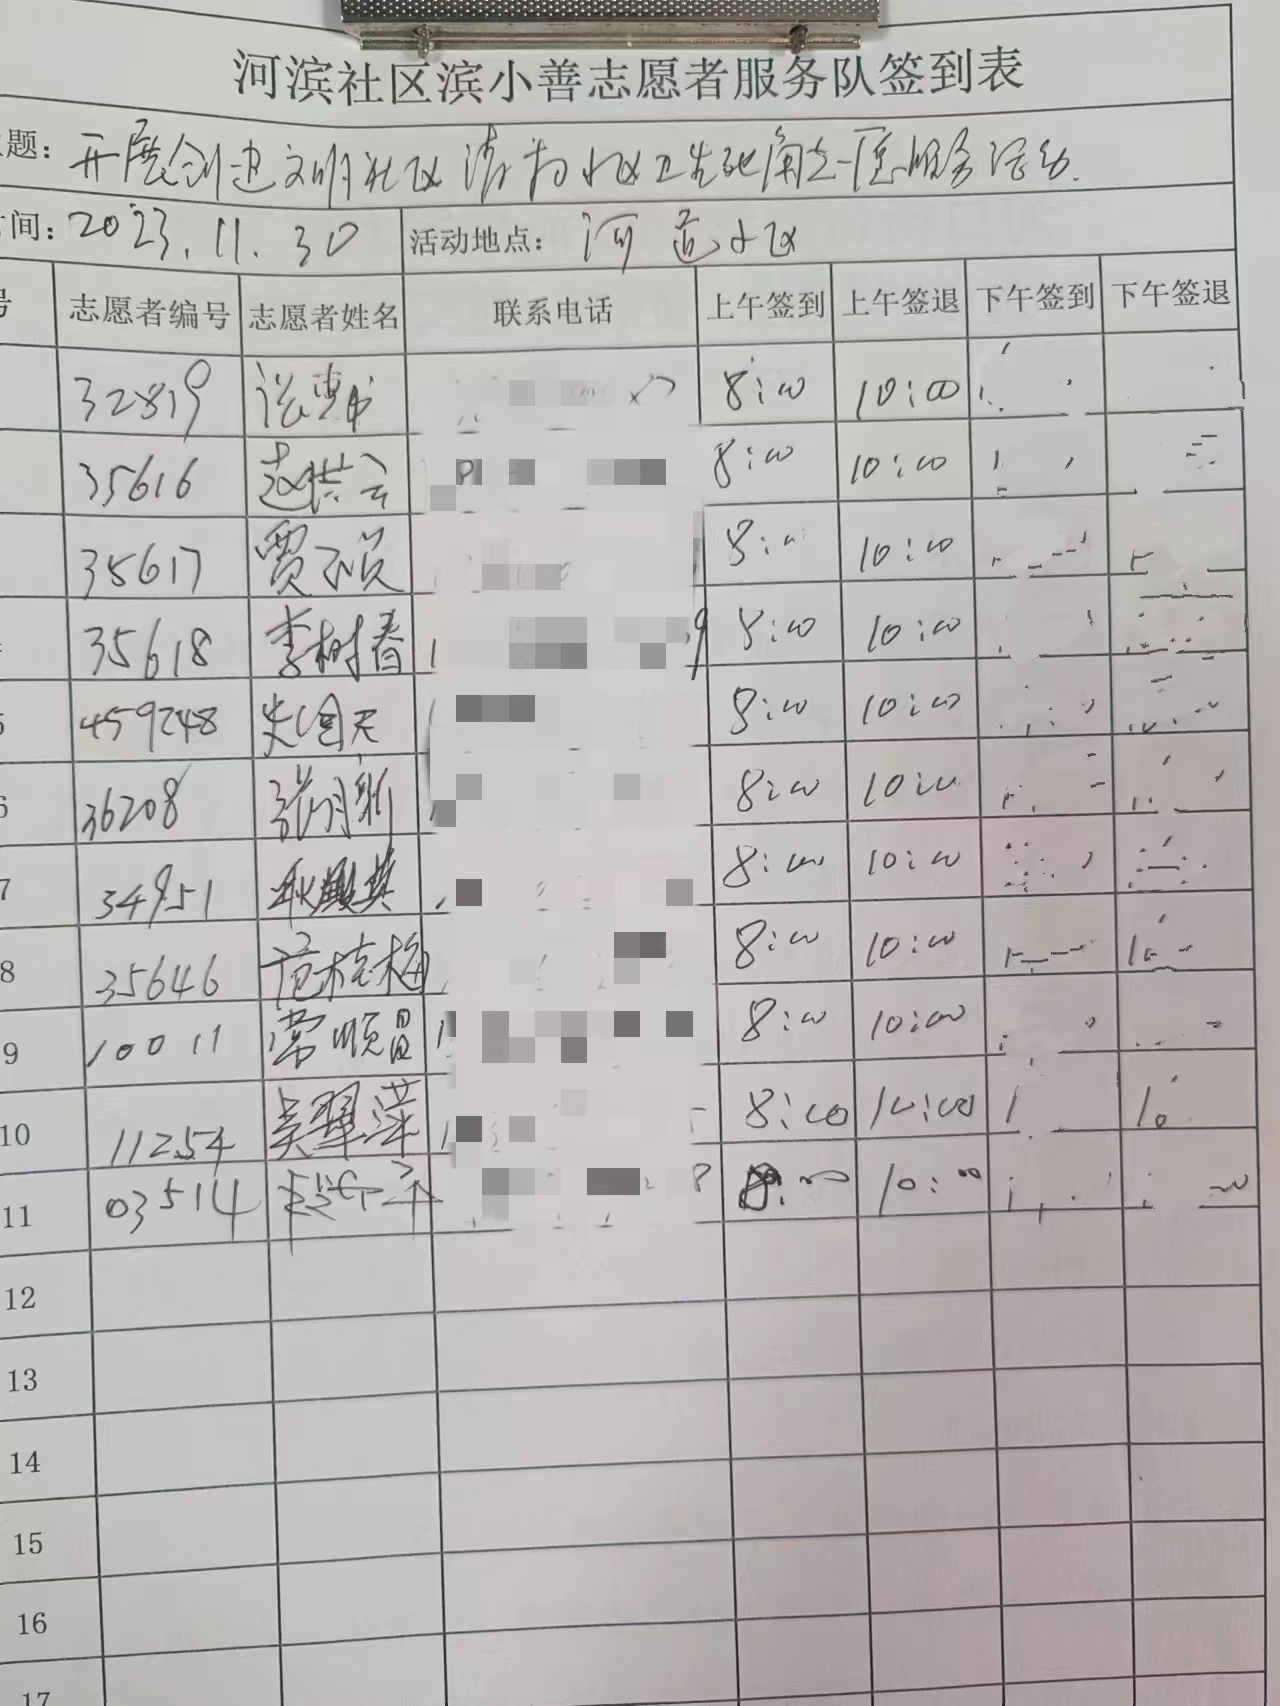 河滨社区滨小善志愿者服务队签到表
题: 开展创建文明社区清扫小区卫生死角志愿服务活动.
间: 2023.11.30 活动地点: 河道小区
号 志愿者编号 志愿者姓名 联系电话 上午签到 上午签退 下午签到 下午签退
32819 8:00 10:00
35616 8:00 10:00
35617 贾 8:00 10:00
35618 李树春 8:00 10:00
5 459248 8:00 10:00
6 36208 张月新 8:00 10:00
7 34951 8:00 10:00
8 35646 范桂梅 8:00 10:00
9 10011 常顺昌 8:00 10:00
10 11254 吴翠萍 8:00 10:00
11 03514 8:00 10:00
12
13
14
15
16
17